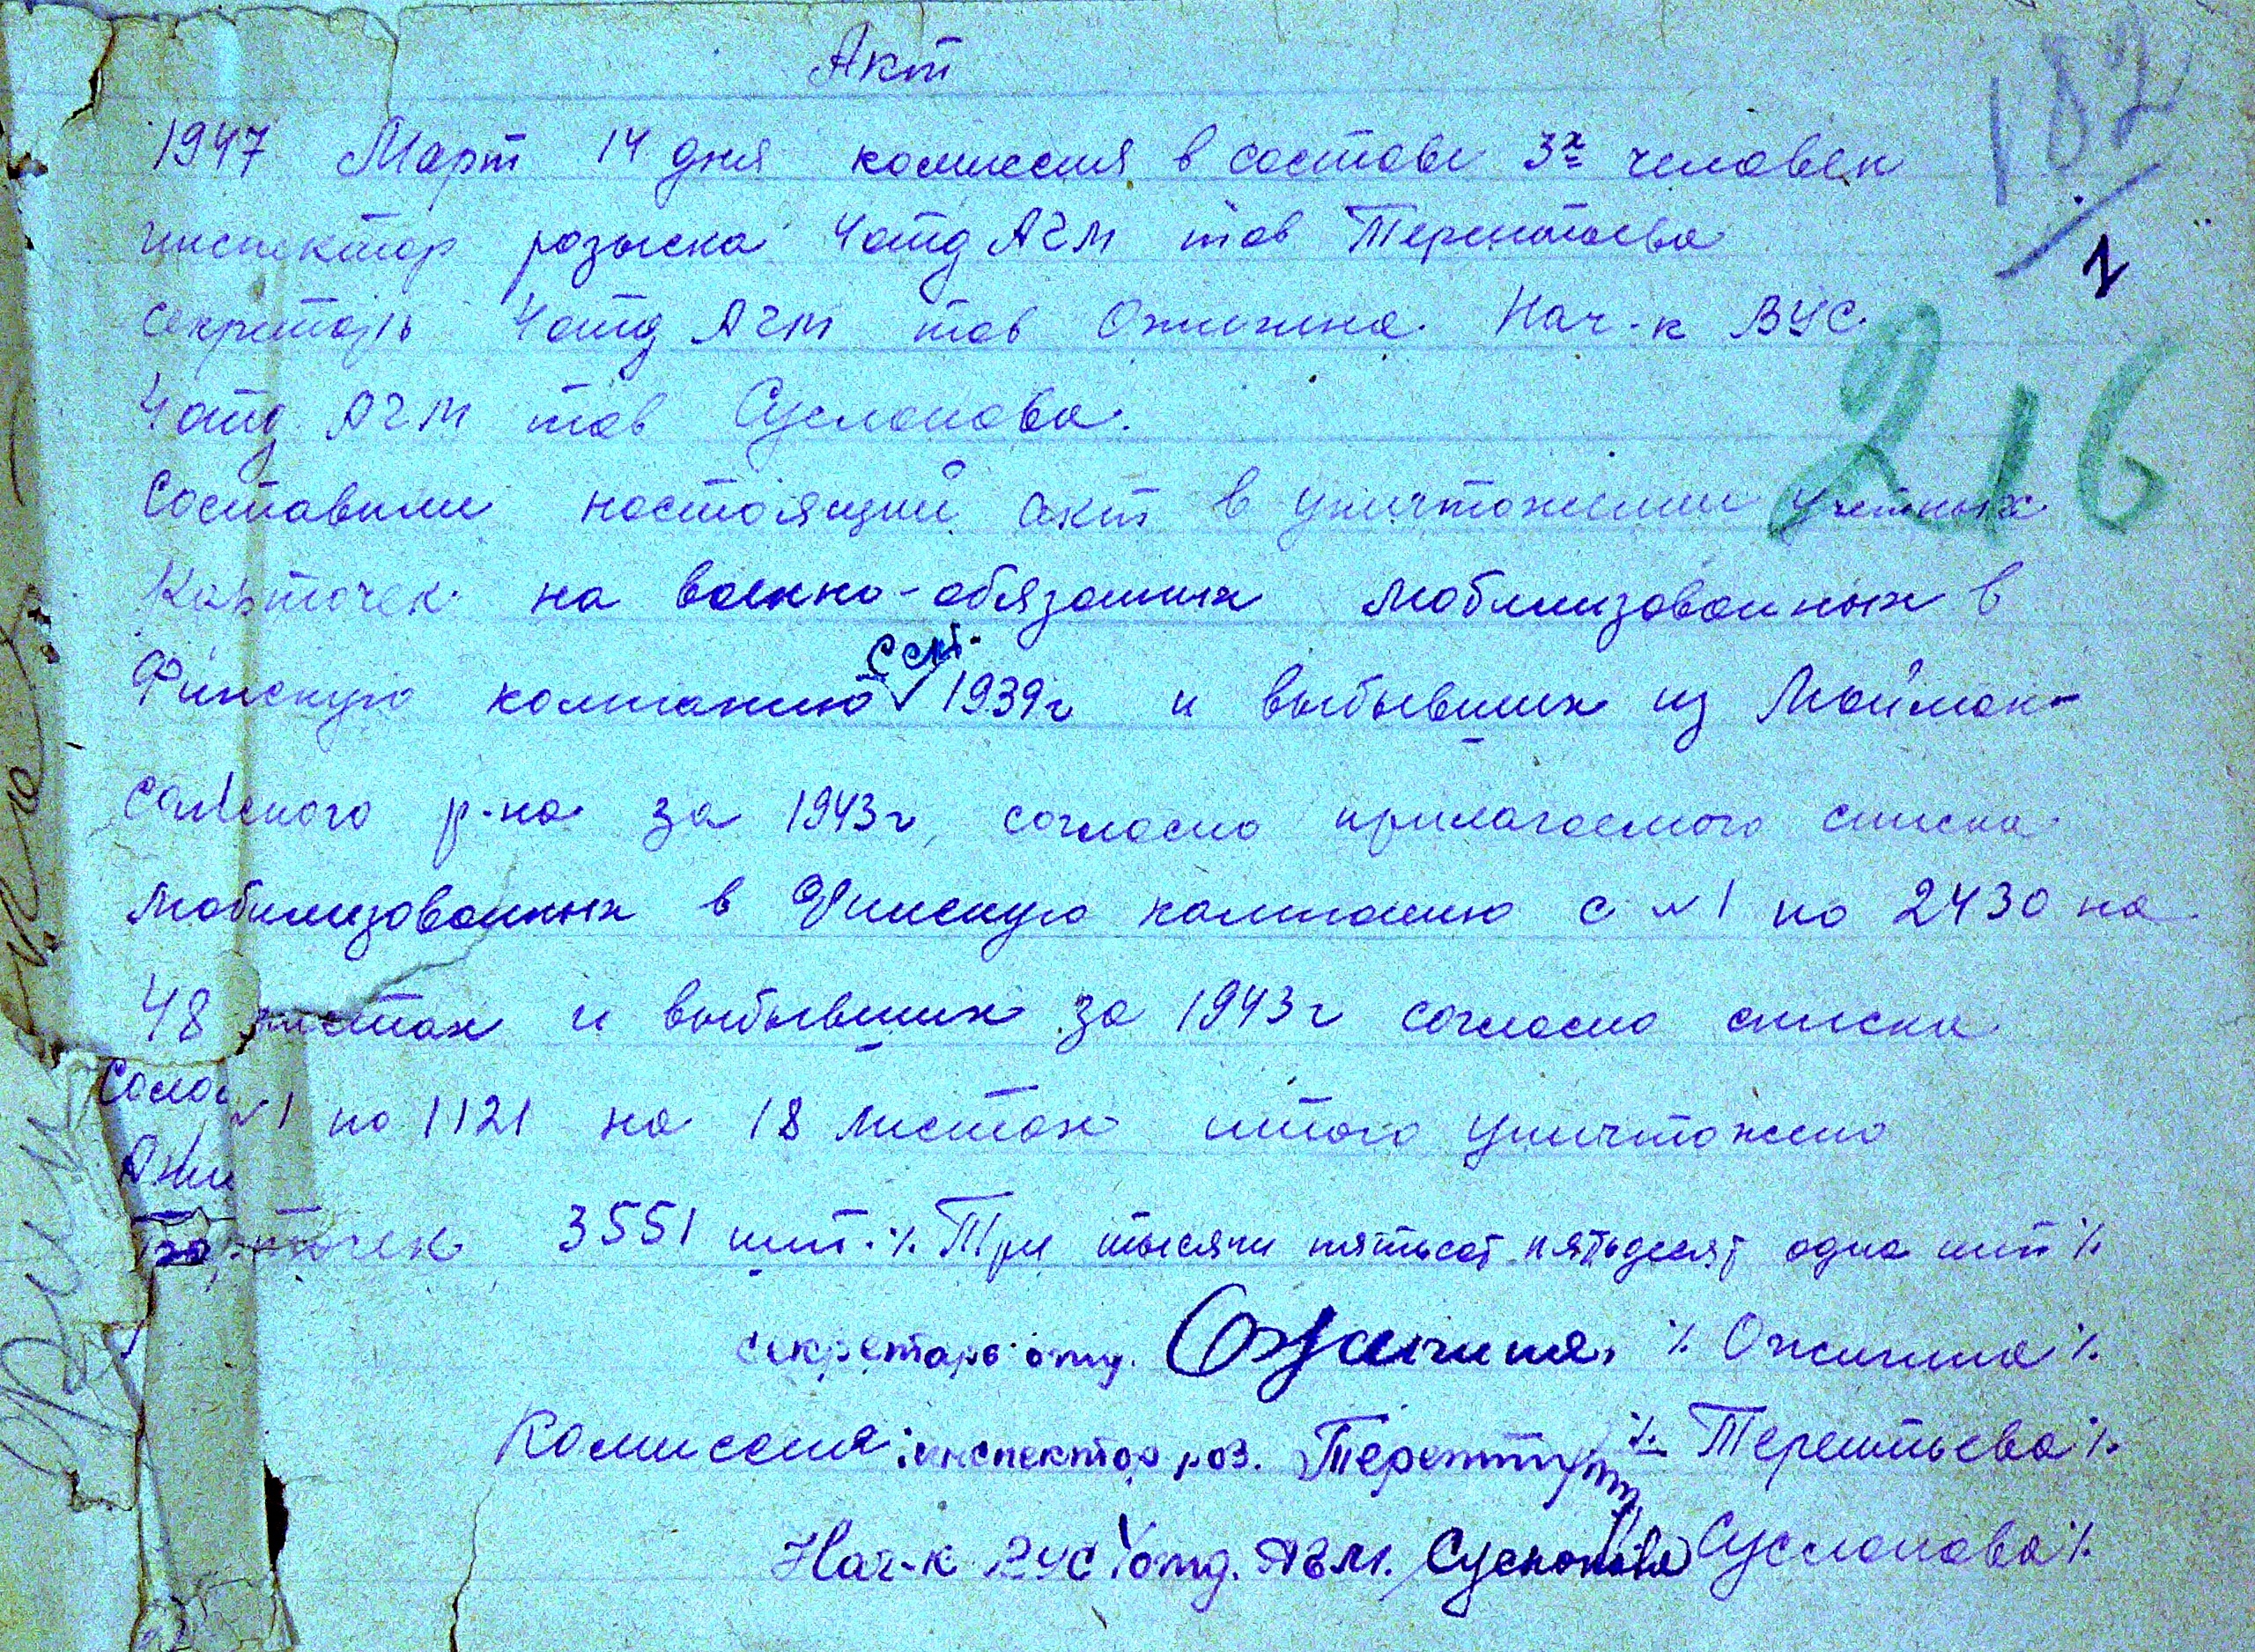 Акт
182
1947 Март 14 дня комиссия в составе 3х человек
инспектор розыска 4 отд АГМ тов Терентьева
секретарь 4 отд АГМ тов Ожигина Нач-к ВУС
216
4 отд АГМ тов Суслонова.
Составили настоящий акт в уничтожении учетных
карточек на военно-обязанных мобилизованных в
Финскую компанию сент. 1939г и выбывших из Маймак-
санского р-на за 1943г, согласно прилагаемого списка
мобилизованных в Финскую компанию с №1 по 2430 на
48 листах и выбывших за 1943г согласно списка
№1 по 1121 на 18 листах итого уничтожено
карточек 3551 шт. ·/. Три тысячи пятьсот пятьдесят одна шт ·/.
секретарь отд. ·/. Ожигина ·/.
Комиссия: инспектор роз. ·/. Терентьева ·/.
Нач-к ВУС 4 отд. АГМ. Суслонова Суслонова ·/.